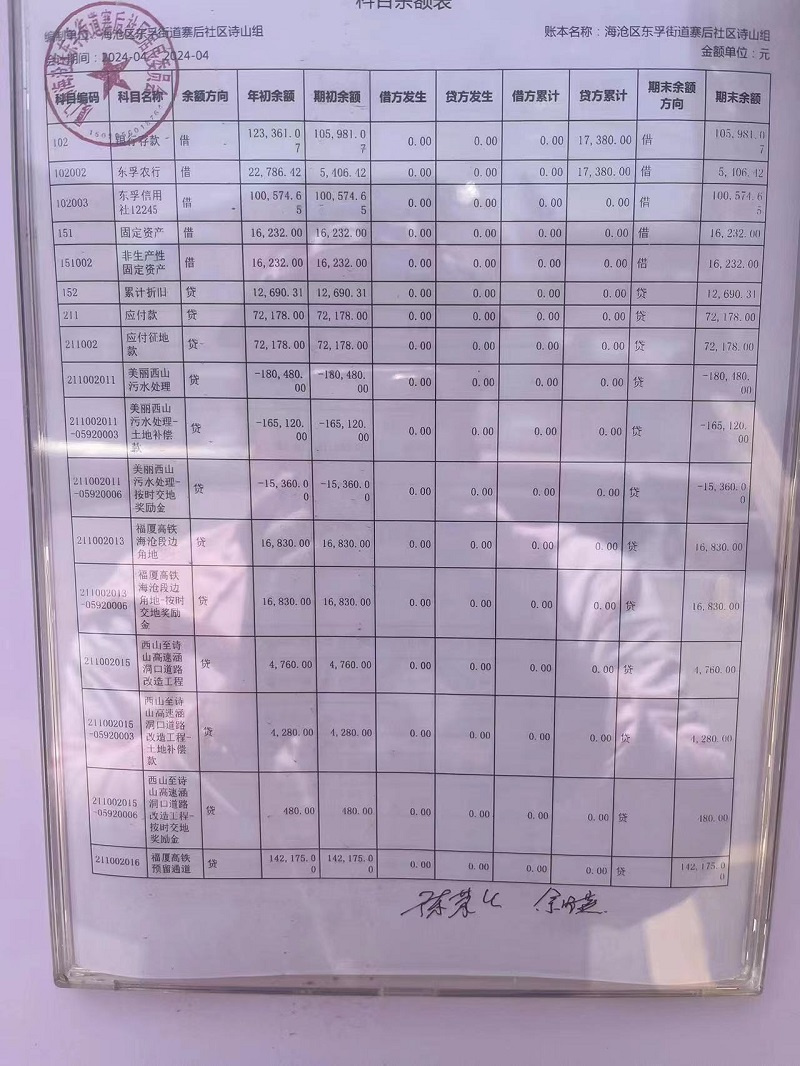 科目余额表
编制单位：海沧区东孚街道寨后社区诗山组 账本名称：海沧区东孚街道寨后社区诗山组
期间：2024-04 2024-04 金额单位：元
科目编码 科目名称 余额方向 年初余额 期初余额 借方发生 贷方发生 借方累计 贷方累计 期末余额方向 期末余额
102 银行存款 借 123,361.07 105,981.07 0.00 0.00 0.00 17,380.00 借 105,981.07
102002 东孚农行 借 22,786.42 5,406.42 0.00 0.00 0.00 17,380.00 借 5,406.42
102003 东孚信用社12245 借 100,574.65 100,574.65 0.00 0.00 0.00 0.00 借 100,574.65
151 固定资产 借 16,232.00 16,232.00 0.00 0.00 0.00 0.00 借 16,232.00
151002 非生产性固定资产 借 16,232.00 16,232.00 0.00 0.00 0.00 0.00 借 16,232.00
152 累计折旧 贷 12,690.31 12,690.31 0.00 0.00 0.00 0.00 贷 12,690.31
211 应付款 贷 72,178.00 72,178.00 0.00 0.00 0.00 0.00 贷 72,178.00
211002 应付征地款 贷 72,178.00 72,178.00 0.00 0.00 0.00 0.00 贷 72,178.00
211002011 美丽西山污水处理 贷 -180,480.00 -180,480.00 0.00 0.00 0.00 0.00 贷 -180,480.00
211002011-05920003 美丽西山污水处理-土地补偿款 贷 -165,120.00 -165,120.00 0.00 0.00 0.00 0.00 贷 -165,120.00
211002011-05920006 美丽西山污水处理-按时交地奖励金 贷 -15,360.00 -15,360.00 0.00 0.00 0.00 0.00 贷 -15,360.00
211002013 福厦高铁海沧段边角地 贷 16,830.00 16,830.00 0.00 0.00 0.00 0.00 贷 16,830.00
211002013-05920006 福厦高铁海沧段边角地-按时交地奖励金 贷 16,830.00 16,830.00 0.00 0.00 0.00 0.00 贷 16,830.00
211002015 西山至诗山高速涵洞口道路改造工程 贷 4,760.00 4,760.00 0.00 0.00 0.00 0.00 贷 4,760.00
211002015-05920003 西山至诗山高速涵洞口道路改造工程-土地补偿款 贷 4,280.00 4,280.00 0.00 0.00 0.00 0.00 贷 4,280.00
211002015-05920006 西山至诗山高速涵洞口道路改造工程-按时交地奖励金 贷 480.00 480.00 0.00 0.00 0.00 0.00 贷 480.00
211002016 福厦高铁预留通道 贷 142,175.00 142,175.00 0.00 0.00 0.00 0.00 贷 142,175.00